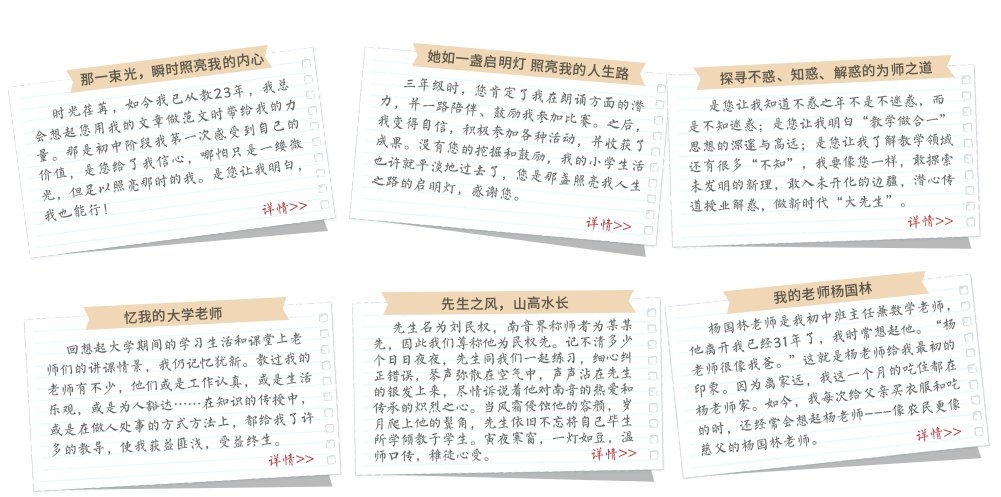 那一束光，瞬时照亮我的内心
时光荏苒，如今我已从教23年，我总
会想起您用我的文章做范文时带给我的力
量。那是初中阶段我第一次感受到自己的
价值，是您给了我信心，哪怕只是一缕微
光，但足以照亮那时的我。是您让我明白，
我也能行！
详情>>
她如一盏启明灯 照亮我的人生路
三年级时，您肯定了我在朗诵方面的潜
力，并一路陪伴、鼓励我参加比赛。之后，
我变得自信，积极参加各种活动，并收获了
成果。没有您的挖掘和鼓励，我的小学生活
也许就平淡地过去了，您是那盏照亮我人生
之路的启明灯，感谢您。
详情>>
探寻不惑、知惑、解惑的为师之道
是您让我知道不惑之年不是不迷惑，而
是不知迷惑；是您让我明白“教学做合一”
思想的深邃与高远；是您让我了解教学领域
还有很多“不知”，我要像您一样，敢探索
未发明的新理，敢入未开化的边疆，潜心传
道授业解惑，做新时代“大先生”。
详情>>
忆我的大学老师
回想起大学期间的学习生活和课堂上老
师们的讲课情景，我仍记忆犹新。教过我的
老师有不少，他们或是工作认真，或是生活
乐观，或是为人豁达……在知识的传授中，
或是在做人处事的方式方法上，都给我了许
多的教导，使我获益匪浅，受益终生。
详情>>
先生之风，山高水长
先生名为刘民权，南音界称师者为某某
先，因此我们尊称他为民权先。记不清多少
个日日夜夜，先生同我们一起练习，细心纠
正错误，琴声弥散在空气中，声声沾在先生
的银发上来，尽情诉说着他对南音的热爱和
传承的炽烈之心。当风霜侵蚀他的容颜，岁
月爬上他的鬓角，先生依旧不忘将自己毕生
所学倾教于学生。寅夜寒窗，一灯如豆，温
师口传，稚徒心受。
详情>>
我的老师杨国林
杨国林老师是我初中班主任兼数学老师，
他离开我已经31年了，我时常想起他。“杨
老师很像我爸。”这就是杨老师给我最初的
印象。因为离家远，我这一个月的吃住都在
杨老师家。如今，我每次给父亲买衣服和吃
的时，还经常会想起杨老师———像农民更像
慈父的杨国林老师。
详情>>